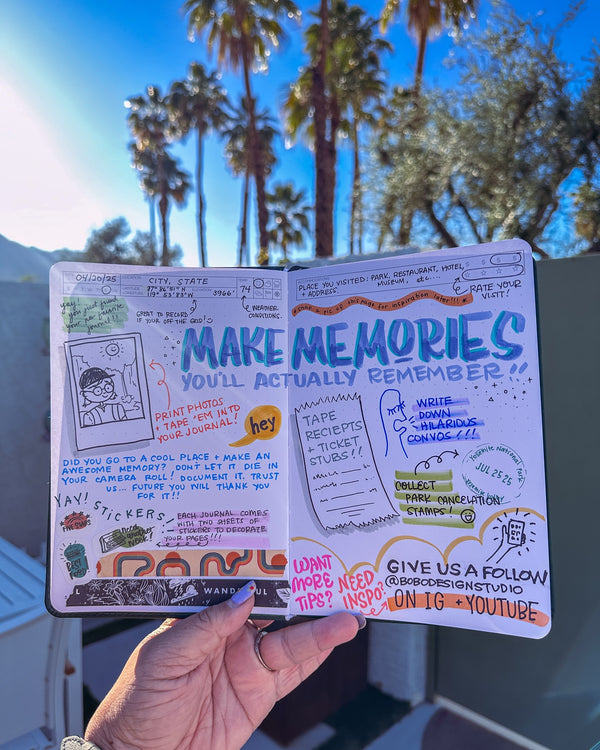 04/20/25
LOCATION
CITY, STATE
37° 86' 81" N
19° 53' 83" W
3966'
74
GREAT TO RECORD
IF YOUR OFF THE GRID!
WEATHER
CONDITIONS.
PLACE YOU VISITED: PARK, RESTAURANT, HOTEL,
+ ADDRESS. MUSEUM, etc...
RATE YOUR
VISIT!
SNAP A PIC OF THIS PAGE FOR INSPIRATION LATER!!!
MAKE MEMORIES
YOU'LL ACTUALLY REMEMBER!!
PRINT PHOTOS
+ TAPE 'EM INTO
YOUR JOURNAL!
hey
DID YOU GO TO A COOL PLACE + MAKE AN
AWESOME MEMORY? DON'T LET IT DIE IN
YOUR CAMERA ROLL! DOCUMENT IT. TRUST
US... FUTURE YOU WILL THANK YOU
FOR IT!!
YAY! STICKERS
EACH JOURNAL COMES
WITH TWO SHEETS OF
STICKERS TO DECORATE
YOUR PAGES!!!
WANDERFUL
TAPE
RECIEPTS
+ TICKET
STUBS!!
WRITE
DOWN
HILARIOUS
CONVOS!!!
COLLECT
PARK CANCELATION
STAMPS!
Yosemite National Park
JUL 25 25
WANT
MORE
TIPS?
NEED
INSPO?
GIVE US A FOLLOW
@BOBODESIGNSTUDIO
ON IG + YOUTUBE